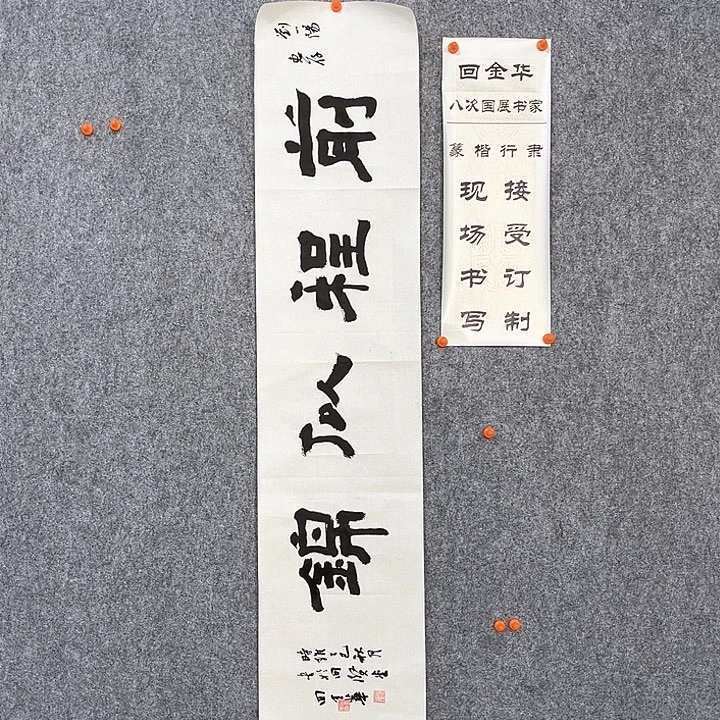 前程似錦
回金华
八次国展书家
篆楷行隶
接受订制
现场书写